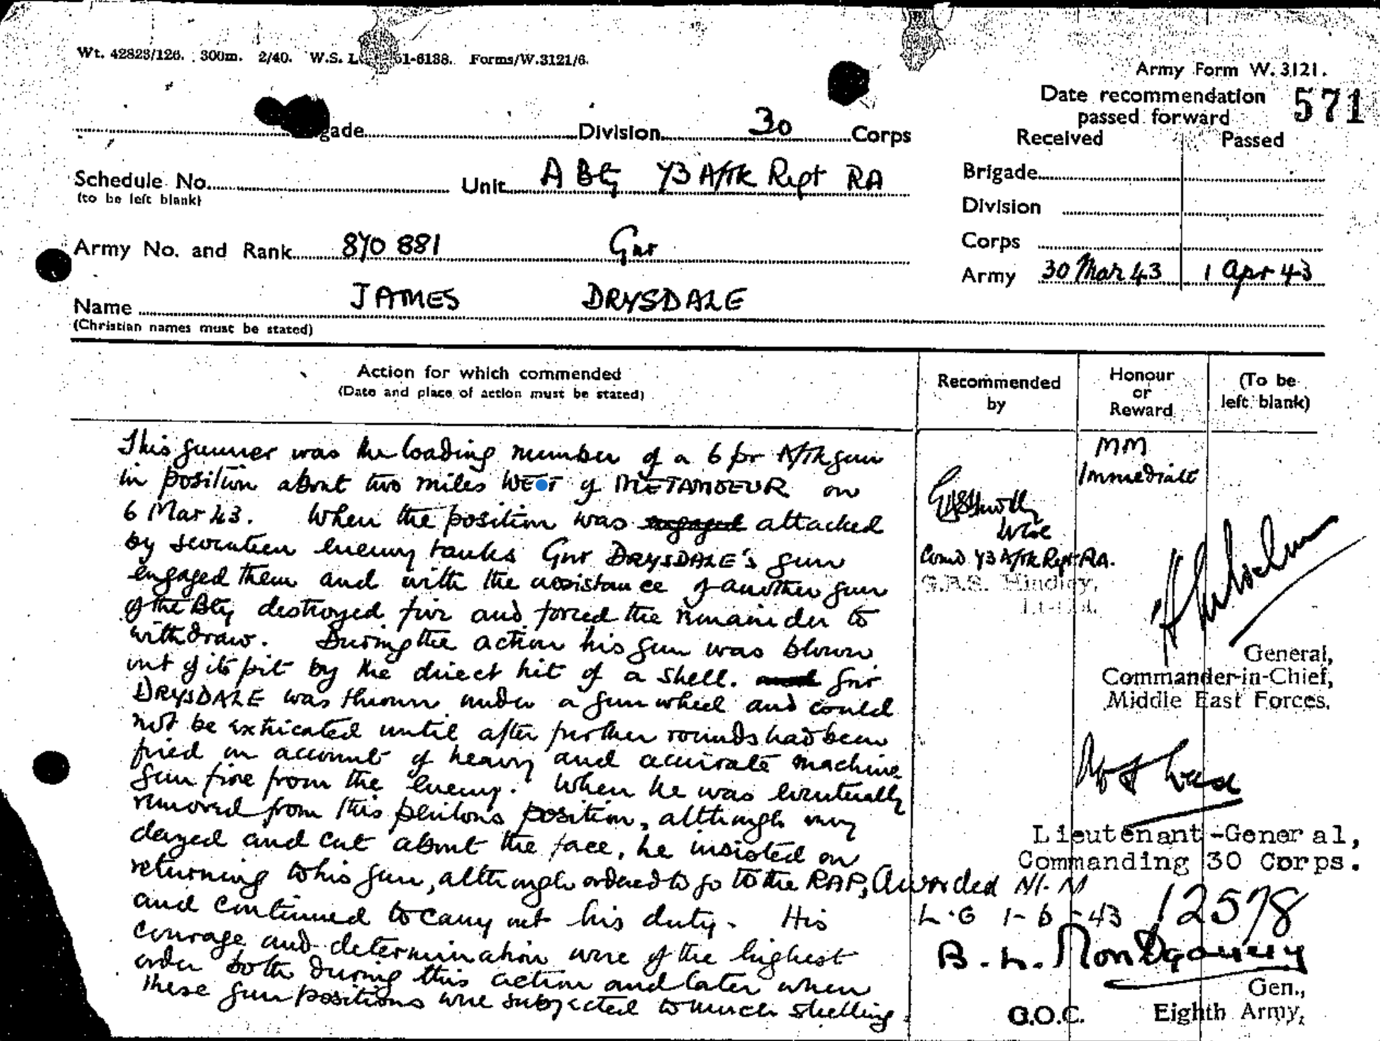 Wt. 42823/126. 300m. 2/40. W.S. 51-6138. Forms/W.3121/6.
Army Form W.3121.
Date recommendation passed forward 571
Received Passed
gade Division 30 Corps
Schedule No. Unit A Bty 73 A/Tk Regt RA
(to be left blank)
Brigade
Division
Army No. and Rank 870 881 Gnr
Corps
Army 30 Mar 43 1 Apr 43
Name JAMES DRYSDALE
(Christian names must be stated)
Action for which commended
(Date and place of action must be stated)
Recommended by
Honour or Reward
(To be left blank)
This gunner was the loading number of a 6 pr A/Tk gun
in position about two miles WEST of METAMEUR on
6 Mar 43. When the position was engaged attacked
by seventeen enemy tanks Gnr DRYSDALE'S gun
engaged them and with the assistance of another gun
of the Bty destroyed five and forced the remainder to
withdraw. During the action his gun was blown
out of its pit by the direct hit of a shell. and Gnr
DRYSDALE was thrown under a gun wheel and could
not be extricated until after further rounds had been
fired on account of heavy and accurate machine
gun fire from the enemy. When he was eventually
removed from this perilous position, although very
dazed and cut about the face, he insisted on
returning to his gun, although ordered to go to the RAP,
and continued to carry out his duty. His
courage and determination were of the highest
order both during this action and later when
these gun positions were subjected to much shelling.
Comd 73 A/Tk Regt RA.
G.A.S. Hindley,
Lt-Col.
MM
Immediate
General,
Commander-in-Chief,
Middle East Forces.
Lieutenant-General,
Commanding 30 Corps.
Awarded M.M
L.G 1-6-43 12578
B. L. Montgomery
Gen.,
G.O.C. Eighth Army,